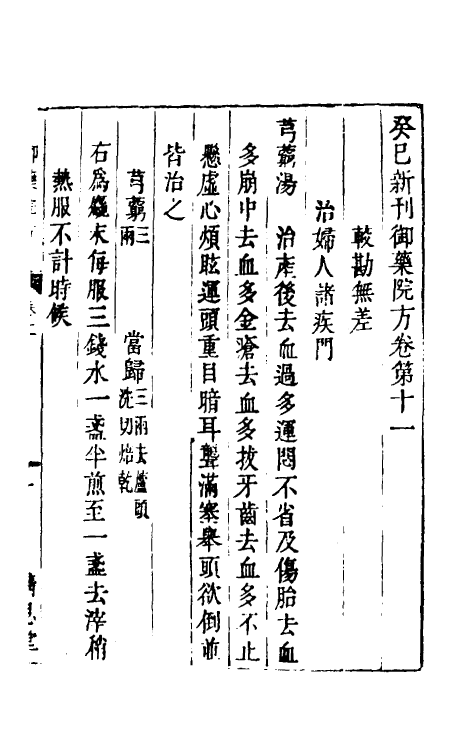 癸巳新刊御藥院方卷第十一
較勘無差
治婦人諸疾門
芎藭湯　治產後去血過多運悶不省及傷胎去血
多崩中去血多金瘡去血多拔牙齒去血多不止
懸虛心煩眩運頭重目暗耳聾滿塞舉頭欲倒並
皆治之
芎藭三兩　當歸三兩去蘆頭洗切焙乾
右爲麄末每服三錢水一盞半煎至一盞去滓稍
熱服不計時候